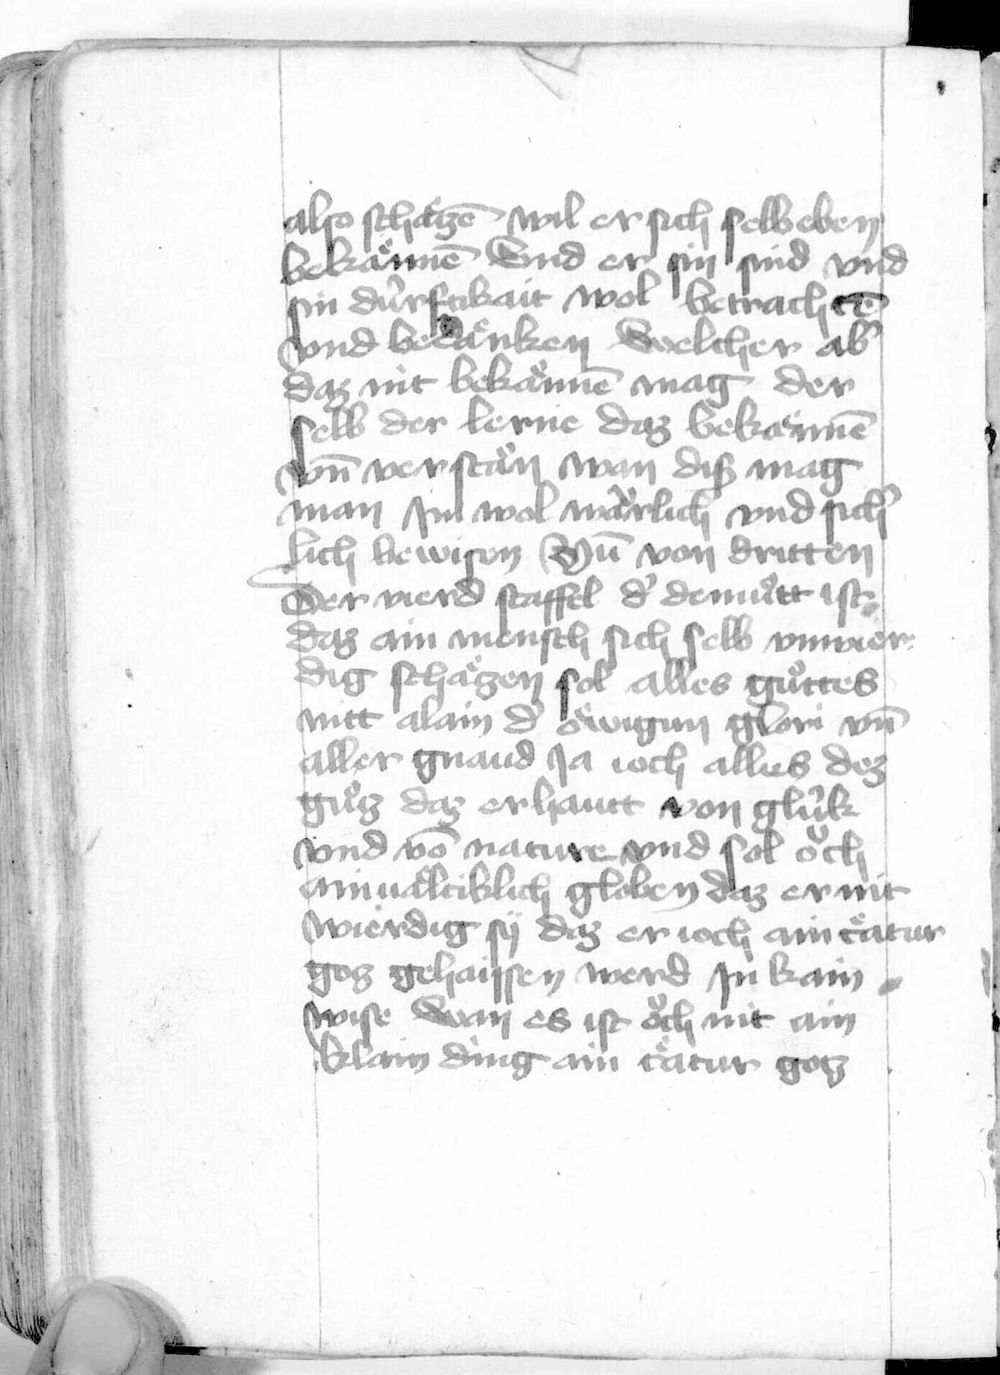 also schäczē wil er sich selb eben
bekäñnē Vnd er sin sind vnd
sin dúrftikait wol betrachtē
vnd bedäncken Welcher ab᾽
daz nit bekäñnē mag der
selb der lerne daz bekäñnē
vn̄ verstän wan diß mag
man Im wol wärlich vnd sich᾽
lich bewisen Nū von dritten
Der vierd staffel d᾽ demuͦtt ist
daz ain mensch sich selb vnwier
dig schäczen sol alles guͦttes
nitt alain d᾽ ewigun glori vn̄
aller gnaud Ja ioch alles dez
guͦcz daz er hautt von glúk
vnd vō nature vnd sol oͮch
ainualtiklich globen daz er nit
wierdig sÿ daz er ioch ain c᾽atur
gocz gehaissen werd In kain
wise Wan es ist oͮch nit ain
klain ding ain c᾽atur gocz